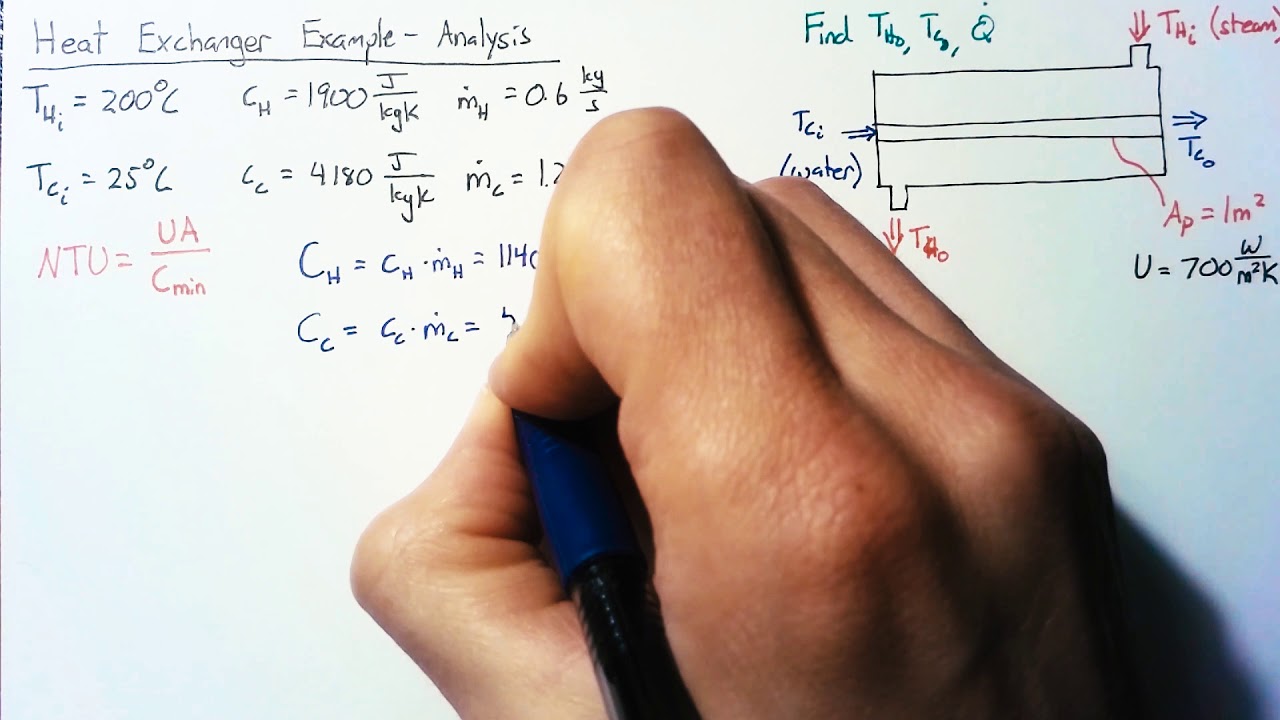 Heat Exchanger Example - Analysis
T_Hi = 200°C C_H = 1900 J/kgK ṁ_H = 0.6 kg/s
T_Ci = 25°C C_C = 4180 J/kgK ṁ_C = 1.2
NTU = UA/C_min
C_H = C_H · ṁ_H = 1140
C_C = C_C · ṁ_C =
Find T_Ho, T_Co, Q̇
T_Hi (steam)
T_Ci
(water)
T_Co
A_p = 1m²
T_Ho
U = 700 W/m²K